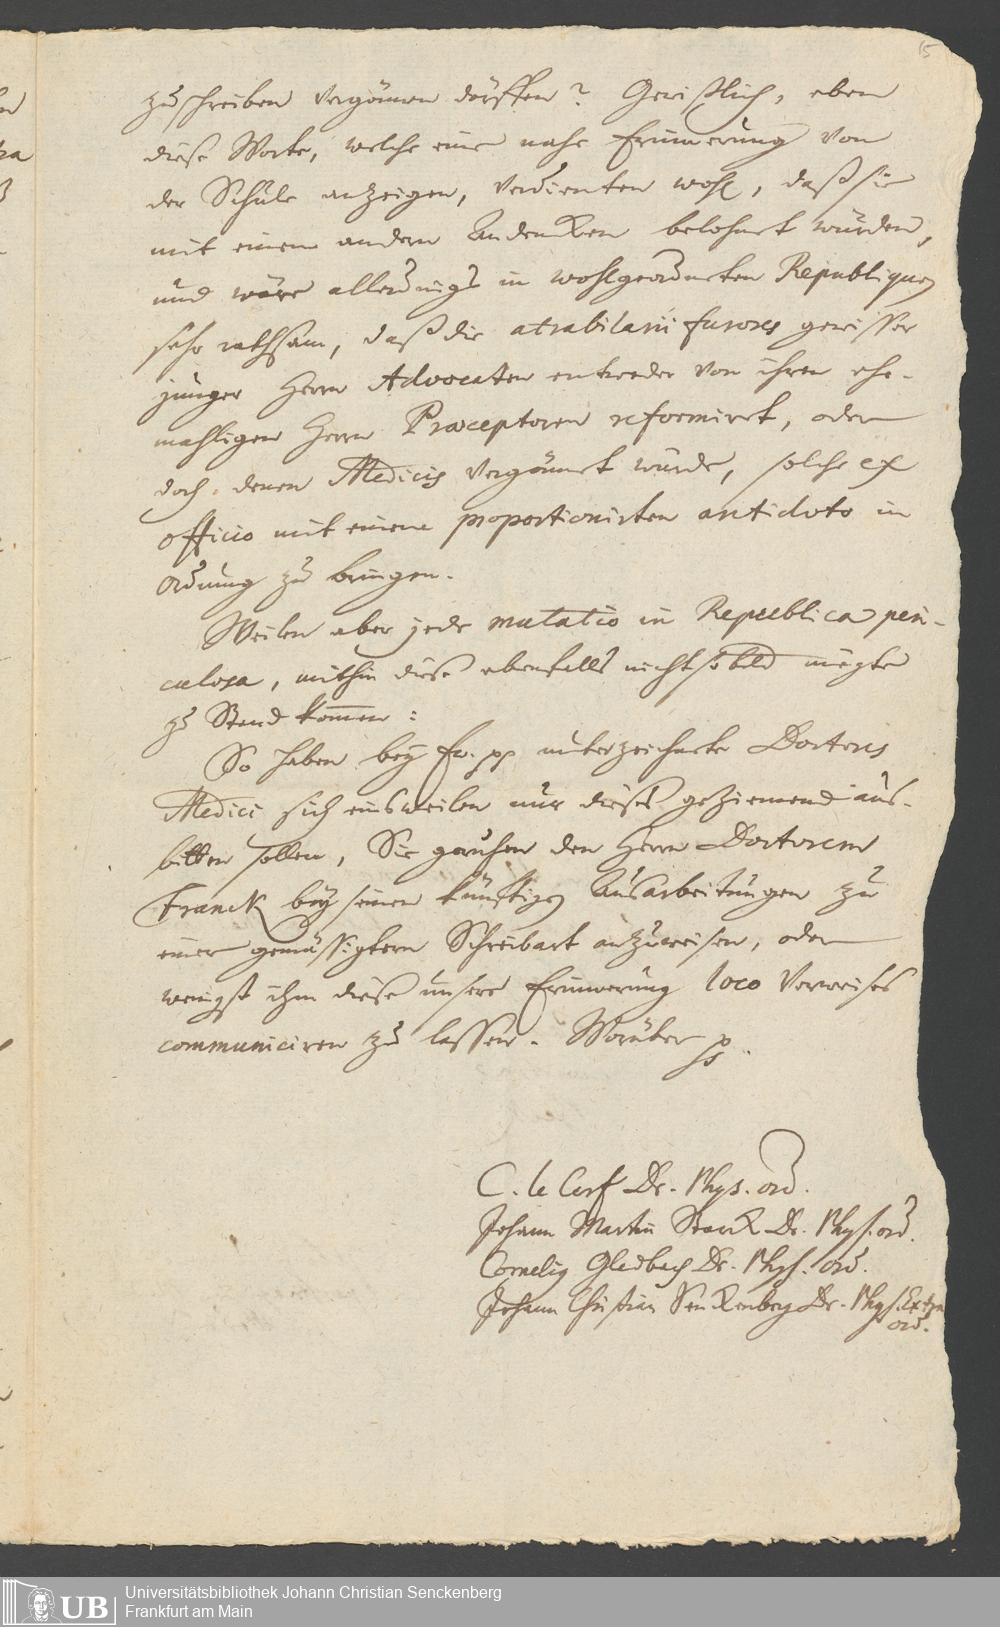 15
zuschreiben vergönnen dörffen? Gewißlich, eben
diese Worte, welche eine nahe Erinnerung von
der Schule anzeigen, verdienten wohl, daß sie
mit einem andern Andencken belohnet würden,
und wäre allerdings in wohlgeordneten Republiquen
sehr rathsam, daß die atrabilarii furores gewisser
junger Herrn Advocaten entweder von ihren ehe-
mahligen Herrn Præceptoren reformiret, oder
doch denen Medicis vergönnet würde, solche ex
officio mit einem proportionirten antidoto in
Ordnung zu bringen.
Weilen aber jede mutatio in Republica peri-
culosa, mithin diese ebenfalls nicht so bald mögte
zu Stand kommen:
So haben bey Ew. pp unterzeichnete Doctores
Medici sich einsweilen nur dieses geziemend aus-
bitten sollen, Sie geruhen den Herrn Doctorem
Franck bey seinen künftigen Ausarbeitungen zu
einer gemässigtern Schreibart anzuweisen, oder
wenigst ihm diese unsere Erinnerung loco Verweises
communiciren zu lassen. Worüber p
C. le Cerf Dr. Phys. ord.
Johann Martin Starck Dr. Phys. ord.
Cornelig Gladbach Dr. Phys. ord.
Johann Christian Senckenberg Dr. Phys. Extra
ord.
UB
Universitätsbibliothek Johann Christian Senckenberg
Frankfurt am Main